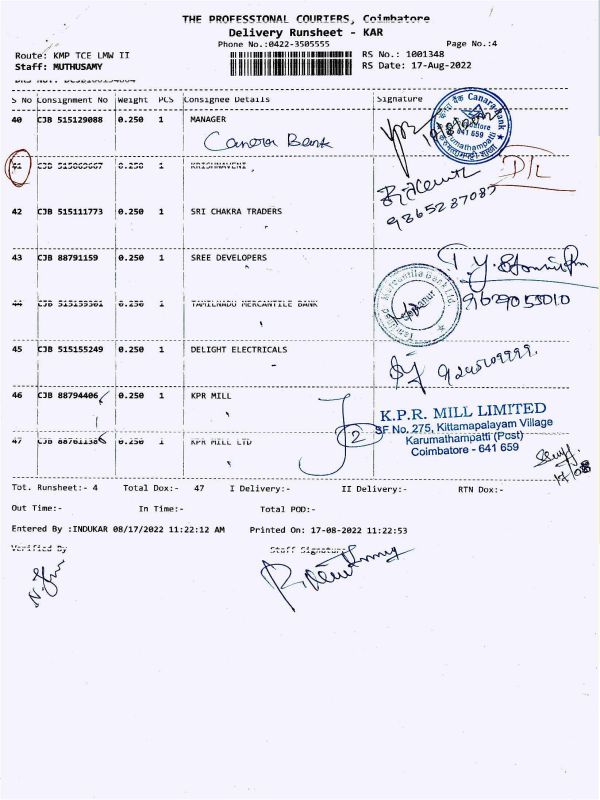 THE PROFESSIONAL COURIERS, Coimbatore
Delivery Runsheet - KAR
Phone No.:0422-3505555
Page No.:4
Route: KMP TCE LMW II
RS No.: 1001348
Staff: MUTHUSAMY
RS Date: 17-Aug-2022
S No Consignment No Weight PCS Consignee Details Signature
40 CJB 515129088 0.250 1 MANAGER
Canara Bank
41 0.250 1 KRISHNAVENI
D/L
9865237087
42 CJB 515111773 0.250 1 SRI CHAKRA TRADERS
43 CJB 88791159 0.250 1 SREE DEVELOPERS
9629053010
44 0.250 1 TAMILNADU MERCANTILE BANK
45 CJB 515155249 0.250 1 DELIGHT ELECTRICALS
46 CJB 88794406 0.250 1 KPR MILL
2
K.P.R. MILL LIMITED
SF No. 275, Kittamapalayam Village
Karumathampatti (Post)
Coimbatore - 641 659
47 CJB 88761138 0.250 1 KPR MILL LTD
17/08
Tot. Runsheet:- 4 Total Dox:- 47 I Delivery:- II Delivery:- RTN Dox:-
Out Time:- In Time:- Total POD:-
Entered By :INDUKAR 08/17/2022 11:22:12 AM Printed On: 17-08-2022 11:22:53
Verified By Staff Signature